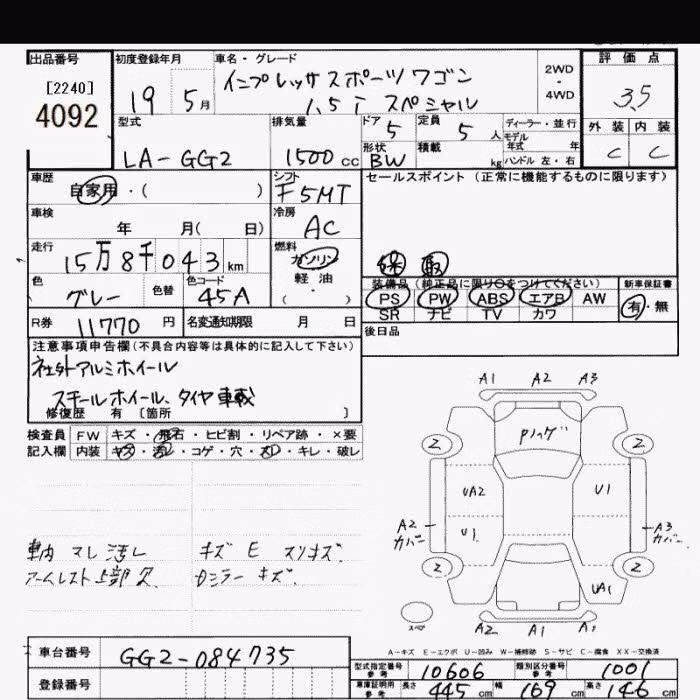 出品番号
[2240]
4092
初度登録年月
19 5月
車名・グレード
インプレッサスポーツワゴン
1.5i スペシャル
2WD
・
4WD
評価点
3.5
外装 内装
C C
型式
LA-GG2
排気量
1500cc
ドア 5
定員 5人
ディーラー・並行
モデル年式 年
形状 BW
積載 kg
ハンドル 左・右
車歴
自家用・( )
シフト
F5MT
セールスポイント (正常に機能するものに限ります)
車検
年 月( 日)
冷房
AC
走行
15万8千043km
燃料
ガソリン
軽油
( )
保 取
色
グレー
色替
色コード
45A
装備品(純正品に限り○をつけてください)
PS PW ABS エアB AW
SR ナビ TV カワ
新車保証書
有・無
R券 11770円
名変通知期限 月 日
後日品
注意事項申告欄(不具合内容等は具体的に記入して下さい)
社外アルミホイール
スチールホイール、タイヤ車載
修復歴 有 [箇所 ]
検査員 FW キズ・飛石・ヒビ割・リペア跡・×要
記入欄 内装 キズ・汚れ・コゲ・穴・スレ・キレ・破レ
A1 A2 A3
Pハゲ
2 2
UA2 U1
A2 カバー
U1
A3 カバー
2 2
UA1
スペア
A2 A1 A1
車内 スレ 汚レ
アームレスト上部欠
キズ E スリキズ
Dミラーキズ
A-キズ E-エクボ U-凹み W-補修跡 S-サビ C-腐食 XX-交換済
車台番号 GG2-084735
登録番号
型式指定番号 参考 10606
類別区分番号 参考 1001
車庫証明用 参考 長さ 445cm 幅 169cm 高さ 146cm